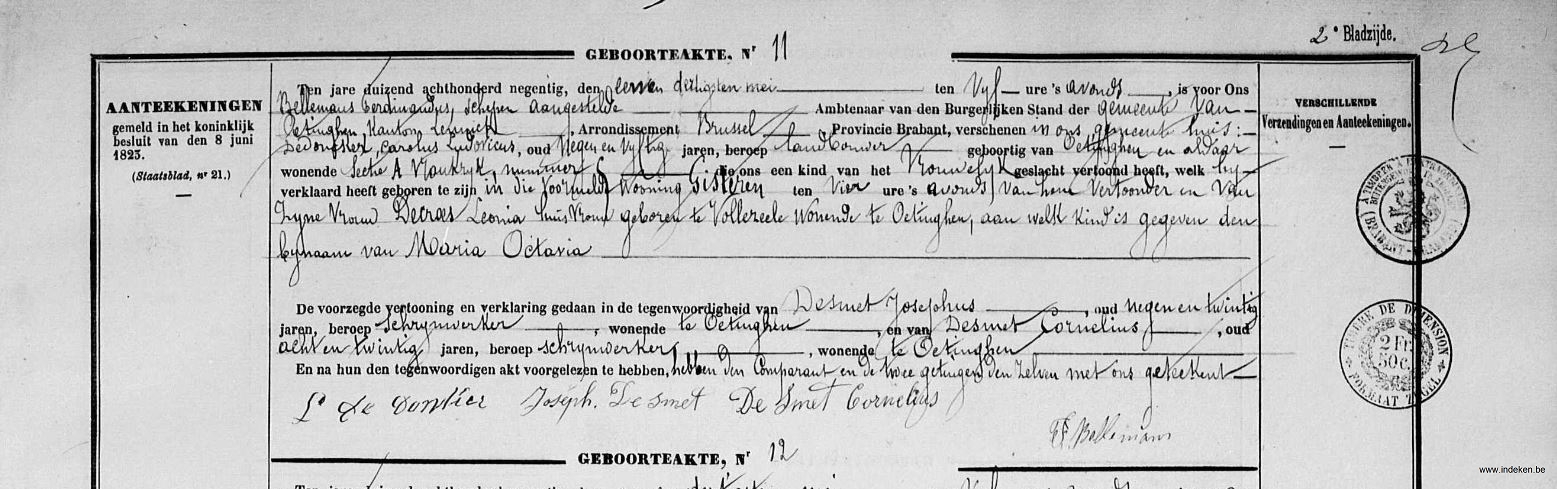 2e Bladzijde.
GEBOORTEAKTE, Nr 11
AANTEEKENINGEN
gemeld in het koninklijk
besluit van den 8 juni
1823.
(Staatsblad, nr 21.)
Ten jare duizend achthonderd negentig, den eenen dertigsten mei ten Vyf ure 's avonds, is voor Ons
Bellemans Ferdinandus, schepen aangestelde Ambtenaar van den Burgerlijken Stand der gemeente Van
Oetinghen, Kanton Lennick, Arrondissement Brussel, Provincie Brabant, verschenen in ons gemeente huis:
Dedonfker, Carolus Ludovicus, oud Negen en Vyftig jaren, beroep landbouwer geboortig van Oetinghen en aldaar
wonende Sectie A Vlonkryk, nummer die ons een kind van het Vrouwelyk geslacht vertoond heeft, welk hy
verklaard heeft geboren te zijn, in die Voormelde Wooning Gisteren ten Vier ure 's avonds, van hem Vertoonder en Van
Zyne Vrouw Decraes Leonia huis Vrouw geboren te Vollezeele Wonende te Oetinghen, aan welk kind is gegeven den
bynaam van Maria Octavia
De voorzegde vertooning en verklaring gedaan in de tegenwoordigheid van Desmet Josephus, oud negen en twintig
jaren, beroep schrynwerker, wonende te Oetinghen, en van Desmet Cornelius, oud
acht en twintig jaren, beroep schrynwerker, wonende te Oetinghen
En na hun den tegenwoordigen akt voorgelezen te hebben, hebben den Comparant en de twee getuigen den Zelven met ons geteekent
Ls De Donker Joseph. De smet De Smet Cornelius
F. Bellemans
GEBOORTEAKTE, Nr 12
VERSCHILLENDE
Verzendingen en Aanteekeningen.
TIMBRE DE DIMENSION
2 Fr
50 c.
FORMAAT ZEGEL
www.indeken.be